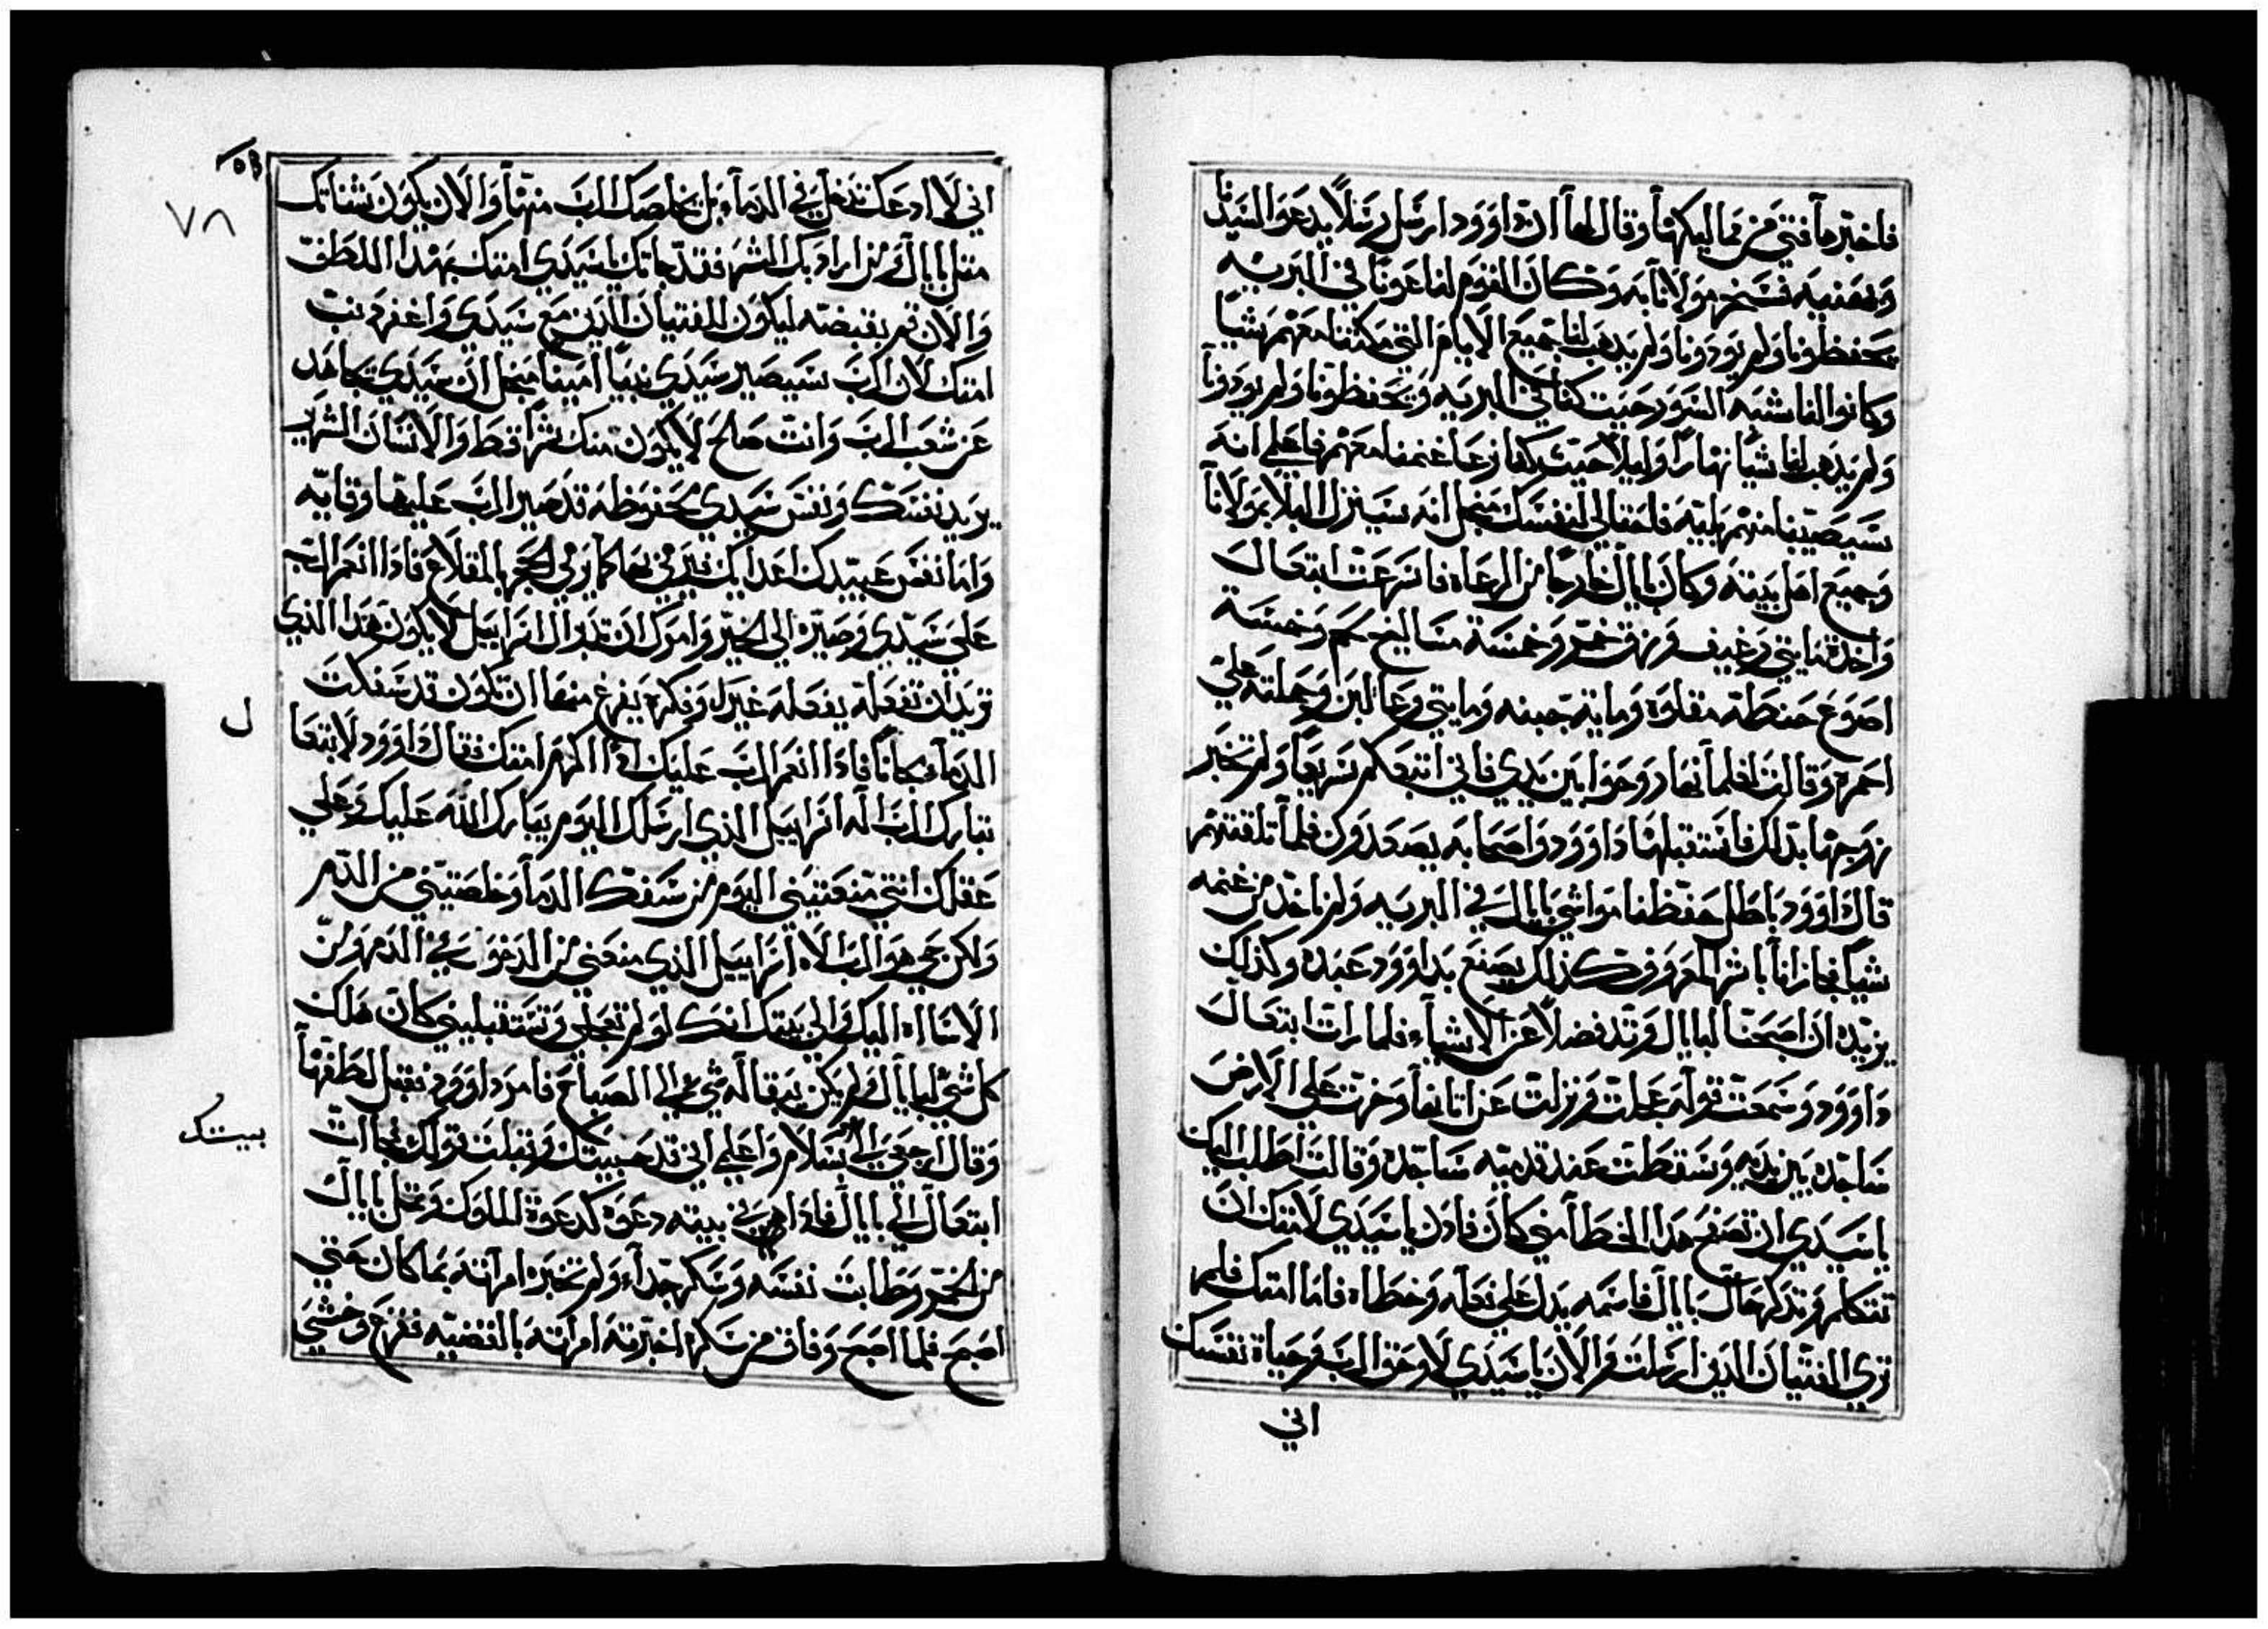 فاخبرها فتي من مماليكها وقال لها ان داوود ارسل رسلاً يدعو السيدنا
وبعضيه فسخر مولانا به وكان القوم لنا عونا في البريه
يحفظونا ولم يودونا ولم يدهب لنا جميع الايام التي مكثنا معهم شيا
وكانوا لنا شبه السور حيت كنا في البريه ويحفظونا ولم يودونا
ولم يدهب لنا شيا نهارا وليلا حيت كنا نرعا غنمنا معهم فاعلمي انه
سيصيبنا منهم بليه فاحتالي لنفسك من اجل انه سينزل البلا بمولانا
وجميع اهل بيته وكان نابال خارجا من الرعاه فاسرعت ابيغال
واخدت مايتي رغيف وزق خمر وخمسة مساليخ لحم وخمسة
اصوع حنطه مقلوه ومايه جبنه ومايتي وعا لبن وحملته علي
احمره وقالت لغلمانها روحوا بين يدي فاني اتبعكم سريعا ولم تخبر
زوجها بدلك فاستقبلها داوود واصحابه يصعدون فلما تلقتهم
قال داوود باطل حفظنا مواشي نابال في البريه ولم ناخد من غنمه
شيا فجازانا بالشر المعروف كذلك يصنع بداوود عبده وكذلك
يزيده ان اصبحنا لنابال وتد فضلا عن الاشياء فلما رات ابيغال
داوود وسمعت قوله عجلت ونزلت عن اتانها وخرت علي الارض
ساجده بين يديه وسقطت عند قدميه ساجده وقالت اطلب اليك
يا سيدي ان تصفح هدا الخطا مني كان فادن يا سيدي لامتك ان
تتكلم وتدكر حال نابال فاسمه يدل علي فعله وخطاه فاما امتك فلم
تري الفتيان الدين ارسلت والان يا سيدي لا وحق الرب وحياة نفسك
اني
٧٨
اني لا ادعك تدخل في الدماء بل يخلصك الرب منها والان يكون شناتك
متل نابال ومن اراد بك الشر فقد جاتك يا سيدي امتك بهدا اللطف
والان تمر بقبضته ليكون للفتيان الدين مع سيدي واغفر دنب
امتك لان الرب سيصير سيدي نبيا امينا من اجل ان سيدي يجاهد
عن شعب الرب وانت صلح لا يكون منك شرا قط والانسان الشرير
يريد نفسك ونفس سيدي محفوظه قد صير الرب عليها وقايه
واما نفس عبيدك اعدايك فيرمي بها كما يرمي الحجر بالمقلاع فادا انعم الرب
علي سيدي وصيره الي الخير وامرك ان تدبر ال اسراييل لا يكون هدا الذي
تريد ان تفعله يفعله غيرك وفكره يفرغ منها ان تكون قد سفكت
الدماء مجانا فادا انعم الرب عليك ادا اكرم امتك فقال داوود لابيغا
ل
تبارك الرب اله اسراييل الذي ارسلك اليوم يبارك الله عليك وعلي
عقلك انتي منعتيني اليوم من سفك الدماء وخلصتيني من الدم
ولكن حي هو الرب الاه اسراييل الذي منعني من الدخول في الدم ومن
الاساءه اليك والي بيتك انك لو لم تعجلي وتستقبليني كان هلك
كل شي لنابال ولم يكن يبقا له شي الي الصباح فامر داوود فقبل لطفها
وقال ارجعي الي بسلام واعلمي اني قد حبيتك وقبلت قولك فجاات
بيتك
ابيغال الي نابال فادا هو في بيته دعوه كدعوة الملوك وتمل نابال
من الخمر وطابت نفسه وسكر جدا ولم تخبره امراته بما كان حتي
اصبح فلما اصبح وفاق من سكره اخبرته امراته بالقضيه ففزع وخشي